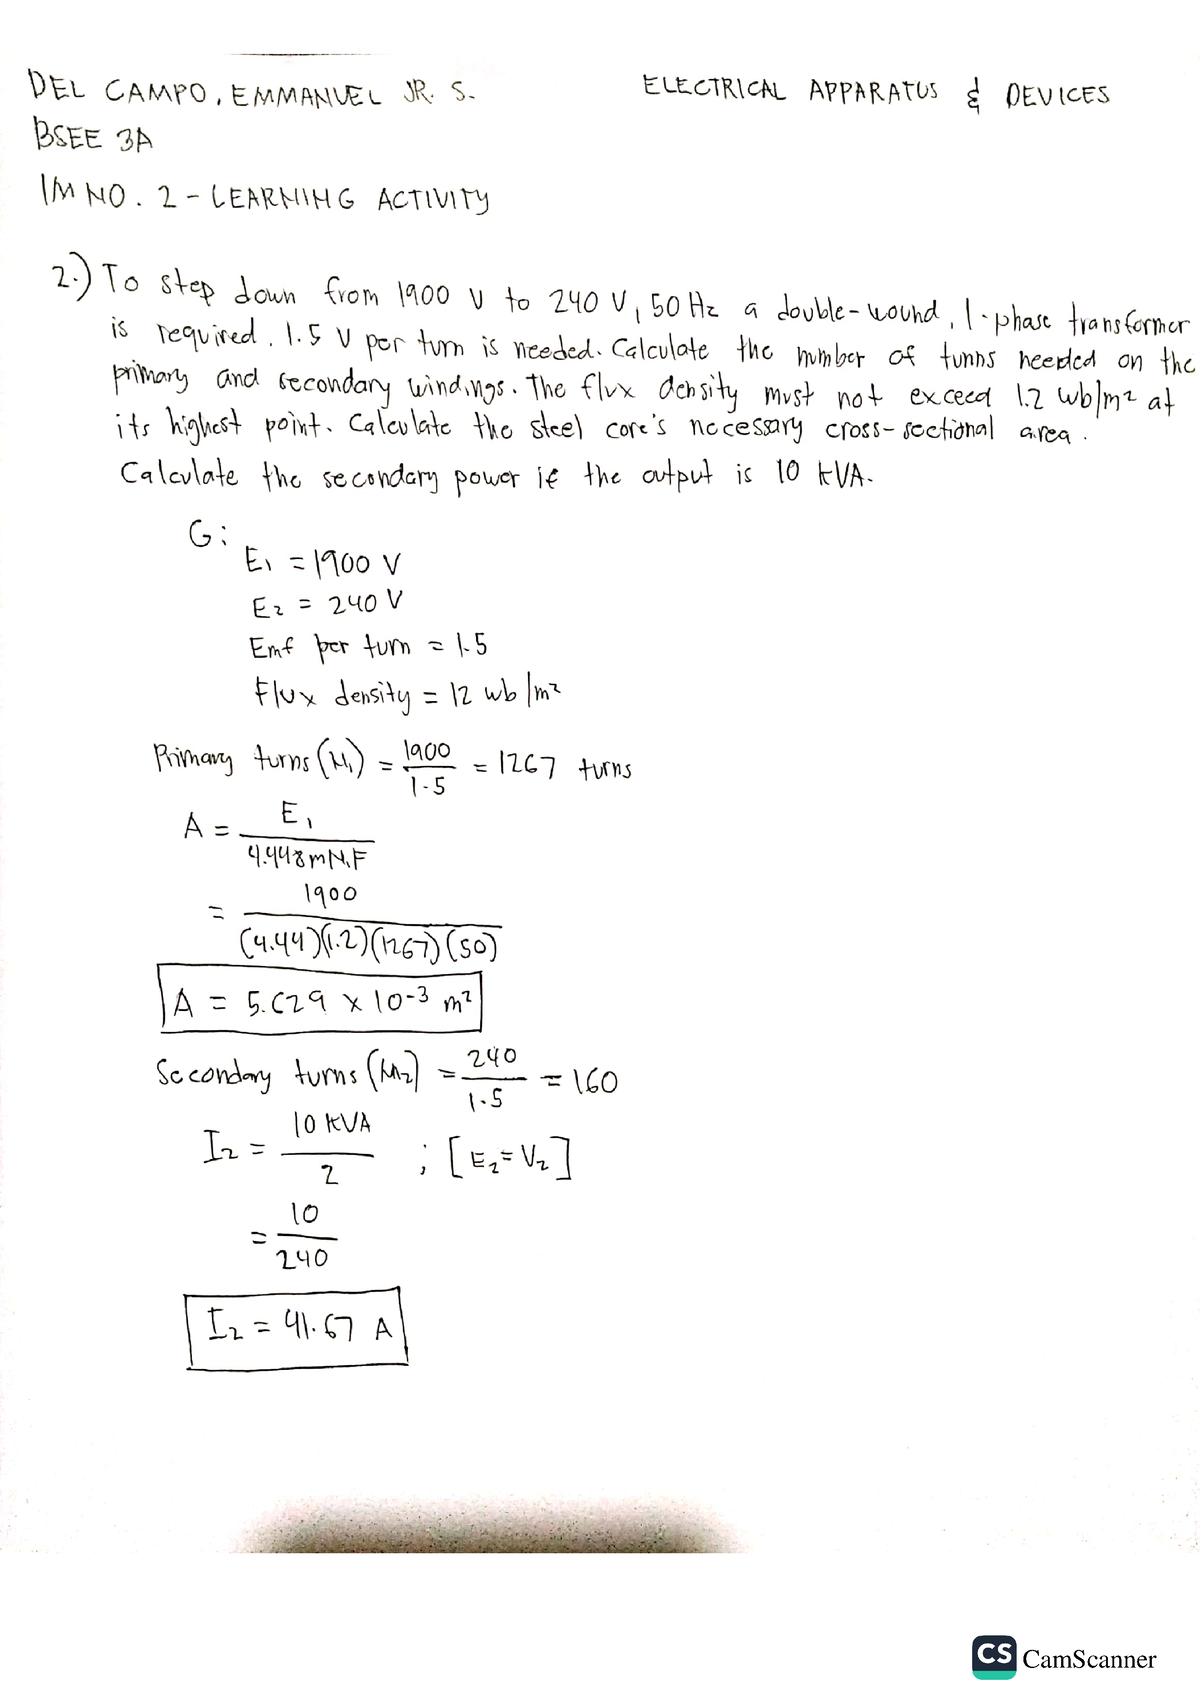 DEL CAMPO, EMMANUEL JR. S.
ELECTRICAL APPARATUS & DEVICES
BSEE 3A
IM NO. 2 - LEARNING ACTIVITY
2.) To step down from 1900 V to 240 V, 50 Hz a double-wound, 1-phase transformer
is required. 1.5 V per turn is needed. Calculate the number of tunns needed on the
primary and secondary windings. The flux density must not exceed 1.2 wb/m² at
its highest point. Calculate the steel core's necessary cross-sectional area.
Calculate the secondary power if the output is 10 kVA.
G:
E₁ = 1900 V
E₂ = 240 V
Emf per turn = 1.5
Flux density = 12 wb/m²
Primary turns (N₁) = 1900 / 1.5 = 1267 turns
A = E₁ / 4.44BmN₁F
= 1900 / (4.44)(1.2)(1267)(50)
A = 5.629 x 10-3 m²
Secondary turns (N₂) = 240 / 1.5 = 160
I₂ = 10 kVA / 2 ; [E₂ = V₂]
= 10 / 240
I₂ = 41.67 A
CS CamScanner